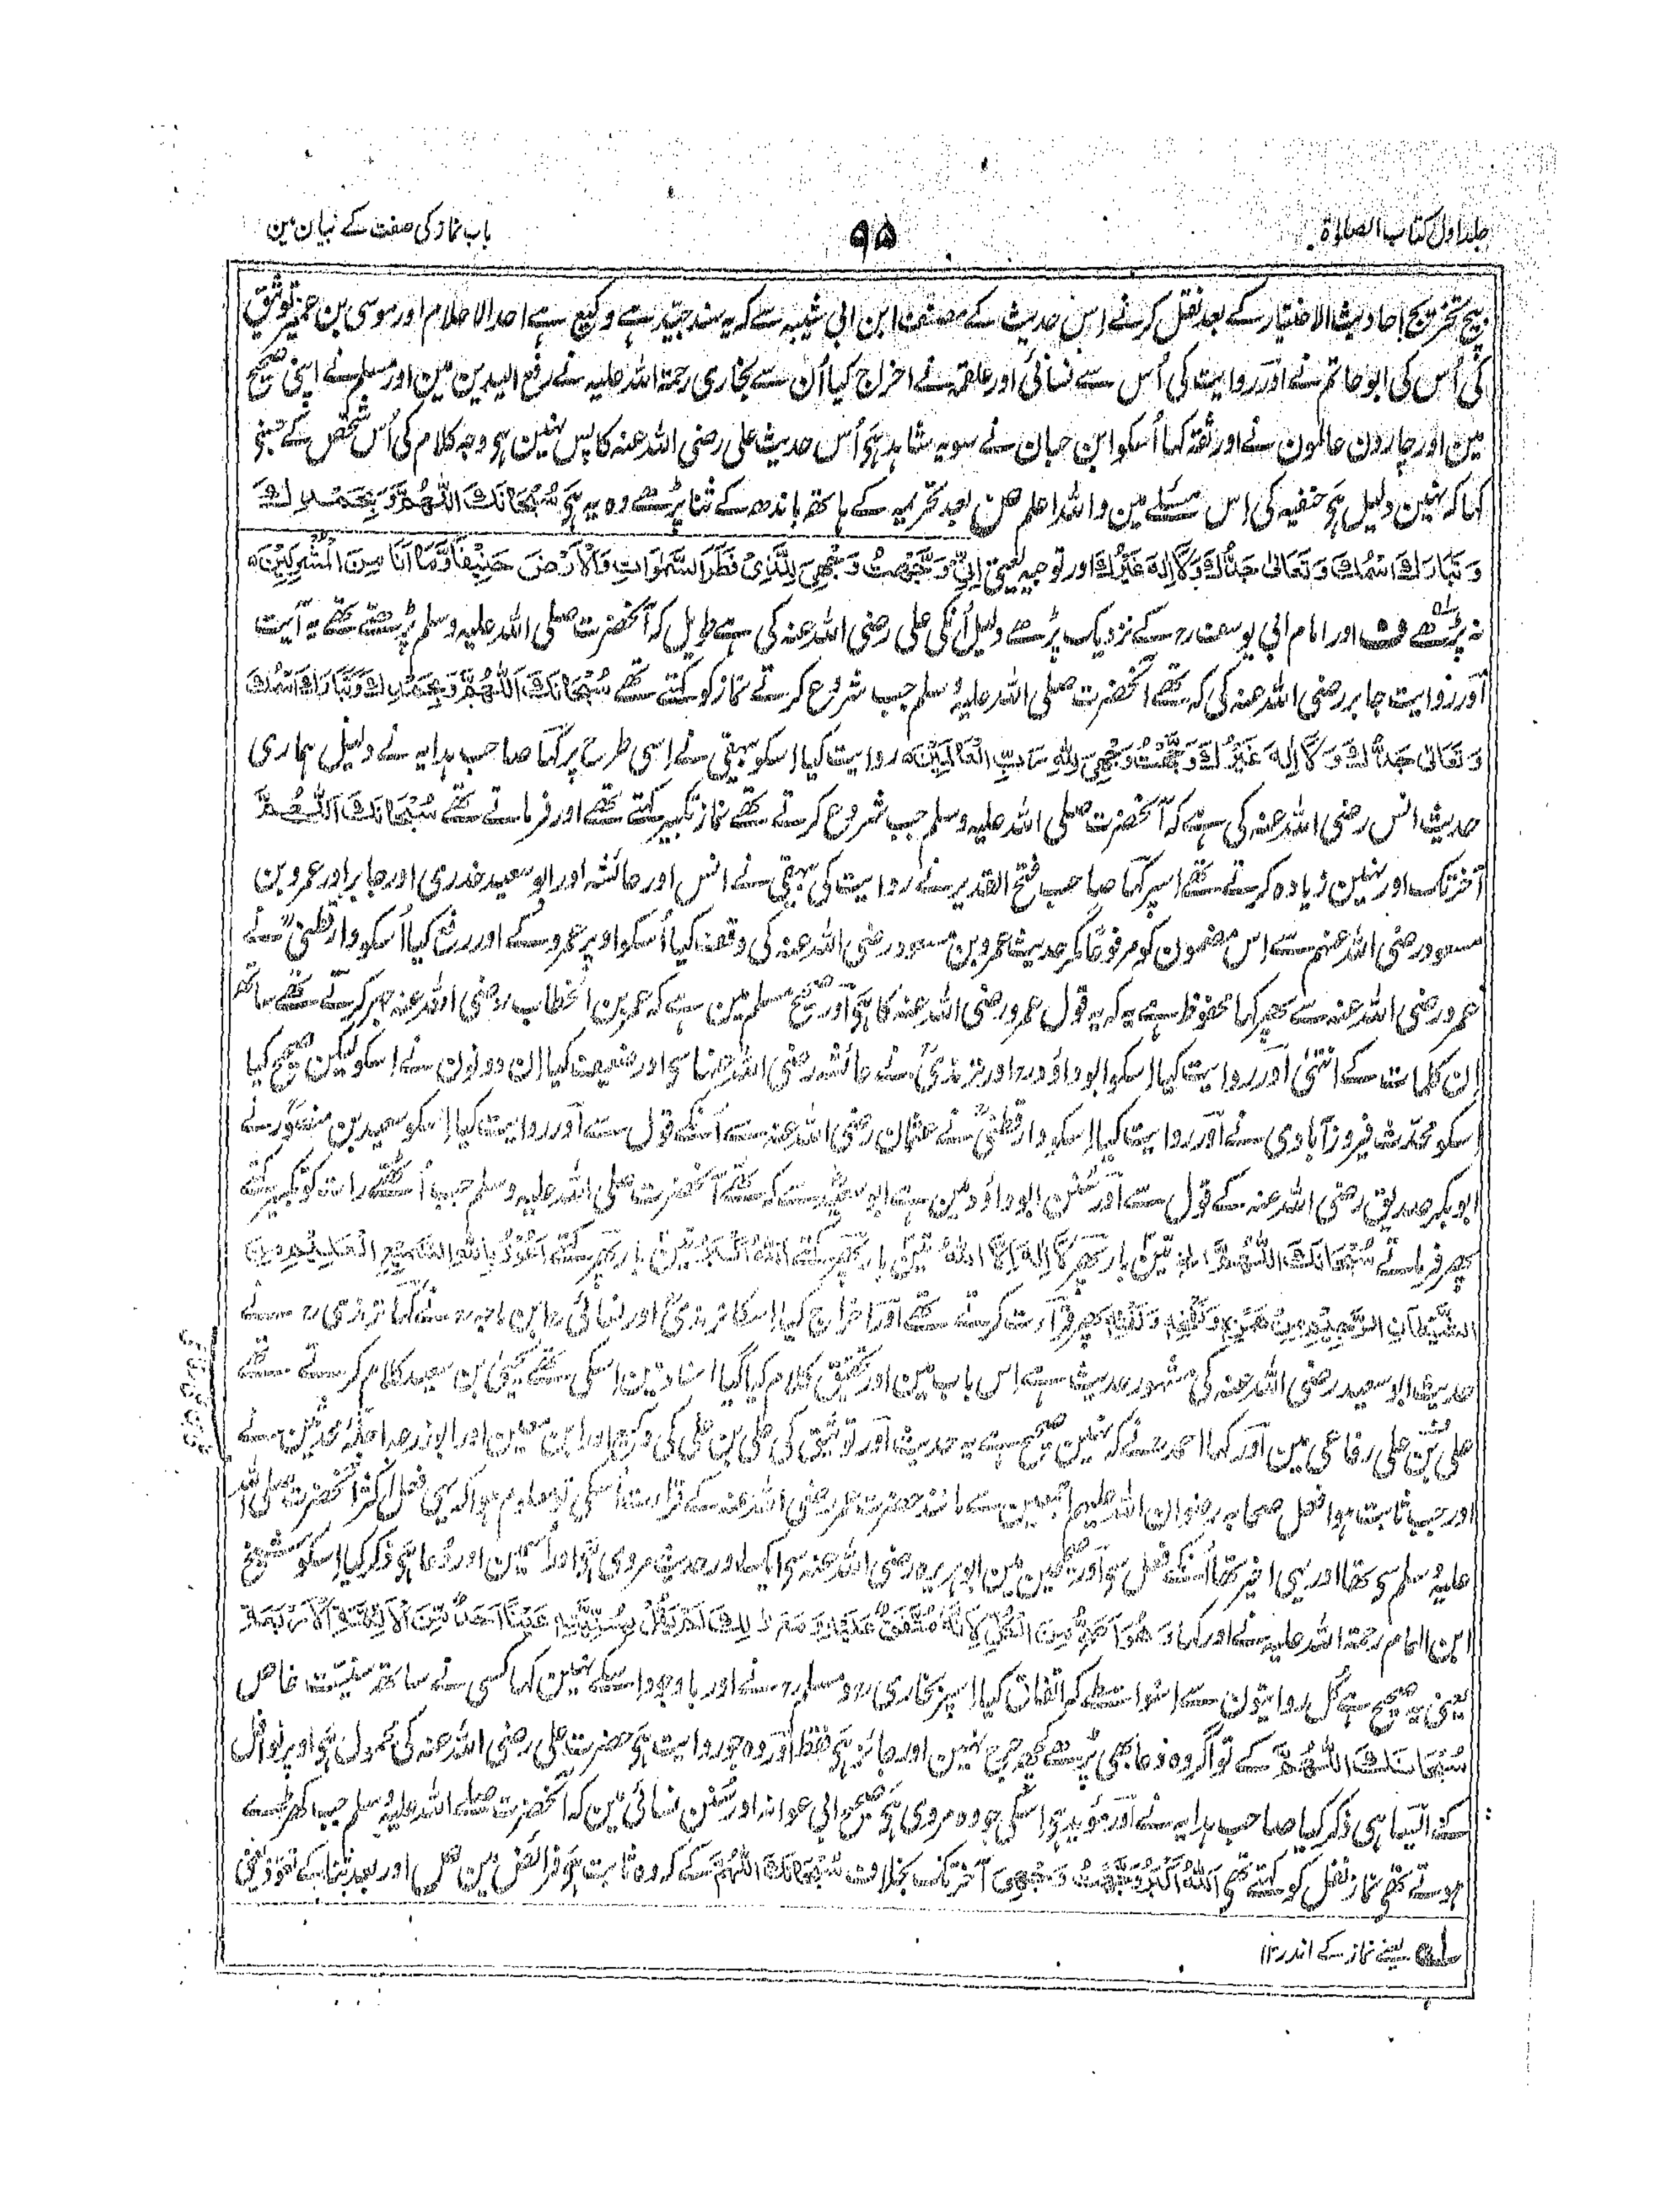 جلد اول کتاب الصلوٰۃ
۹۵
باب نماز کی صفت کے بیان مین
بیچ تخریج احادیث الاختیار کے بعد نقل کرنے اِس حدیث کے مصنف ابن ابی شیبہ سے کہ یہ سند جید ہے وکیع ہے احد الاعلام اور موسی بن عمیر توثیق
کی اُس کی ابو حاتم نے اور روایت کی اُس سے نسائی اور علقمہ نے اخراج کیا اُن سے بخاری رحمۃ اللہ علیہ نے رفع الیدین مین اور مسلم نے اپنی صحیح
مین اور چارون عالمون نے اور ثقہ کہا اُسکو ابن حبان نے سو یہ شاہد ہے اُس حدیث علی رضی اللہ عنہ کا پس نہین ہے وجہ کلام کی اُس شخص کے جسنے
کہا کہ نہین دلیل ہے حنفیہ کی اِس مسئلے مین واللہ اعلم ص بعد تحریمہ کے ہاتھ باندھ کے ثنا پڑھے وہ یہ ہے سُبْحَانَكَ اللّٰهُمَّ وَبِحَمْدِكَ
وَتَبَارَكَ اسْمُكَ وَتَعَالٰى جَدُّكَ وَلَا اِلٰهَ غَيْرُكَ اور توجیہ یعنی اِنِّيْ وَجَّهْتُ وَجْهِيَ لِلَّذِيْ فَطَرَ السَّمٰوَاتِ وَالْاَرْضَ حَنِيْفًا وَّمَا اَنَا مِنَ الْمُشْرِكِيْنَ
نہ پڑھے ف اور امام ابی یوسف رح کے نزدیک پڑھے دلیل اُنکی علی رضی اللہ عنہ کی ہے طویل کہ آنحضرت صلی اللہ علیہ وسلم پڑھتے تھے یہ آیت
اور روایت جابر رضی اللہ عنہ کی کہ تھے آنحضرت صلی اللہ علیہ وسلم جب شروع کرتے نماز کو کہتے تھے سُبْحَانَكَ اللّٰهُمَّ وَبِحَمْدِكَ وَتَبَارَكَ اسْمُكَ
وَتَعَالٰى جَدُّكَ وَلَا اِلٰهَ غَيْرُكَ وَجَّهْتُ وَجْهِيَ لِلّٰهِ رَبِّ الْعَالَمِيْنَ روایت کیا اِسکو بیہقی نے اسی طرح پر کہا صاحب ہدایہ نے دلیل ہماری
حدیث انس رضی اللہ عنہ کی ہے کہ آنحضرت صلی اللہ علیہ وسلم جب شروع کرتے تھے نماز تکبیر کہتے تھے اور فرماتے تھے سُبْحَانَكَ اللّٰهُمَّ
آخر تک اور نہین زیادہ کرتے تھے اسپر کہا صاحب فتح القدیر نے روایت کی بیہقی نے انس اور عائشہ اور ابو سعید خدری اور جابر اور عمرو بن
مسعود رضی اللہ عنہم سے اِس مضمون کو مرفوعًا مگر حدیث عمرو بن مسعود رضی اللہ عنہ کی وقف کیا اُسکو اوپر عمرو کے اور رفع کیا اُسکو دارقطنی نے
عمر رضی اللہ عنہ سے پھر کہا محفوظ ہے یہ کہ یہ قول عمر رضی اللہ عنہ کا ہے اور صحیح مسلم مین ہے کہ عمر بن الخطاب رضی اللہ عنہ جہر کرتے تھے ساتھ
اِن کلمات کے انتہیٰ اور روایت کیا اِسکو ابو داؤد رح اور ترمذی نے عائشہ رضی اللہ عنہا سے اور ضعیف کیا اِن دونون نے اِسکو لیکن صحیح کیا
اِسکو محدث فیروز آبادی نے اور روایت کیا اِسکو دارقطنی نے عثمان رضی اللہ عنہ سے اُنکے قول سے اور روایت کیا اِسکو سعید بن منصور نے
ابو بکر صدیق رضی اللہ عنہ کے قول سے اور سُنن ابو داؤد مین ہے ابو سعید سے کہ تھے آنحضرت صلی اللہ علیہ وسلم جب اُٹھتے رات کو تکبیر کہتے
پھر فرماتے سُبْحَانَكَ اللّٰهُمَّ الخ تین بار پھر لَا اِلٰهَ اِلَّا اللّٰهُ تین بار پھر کہتے اَللّٰهُ اَكْبَرُ تین بار پھر کہتے اَعُوْذُ بِاللّٰهِ السَّمِيْعِ الْعَلِيْمِ مِنَ
الشَّيْطَانِ الرَّجِيْمِ مِنْ هَمْزِهٖ وَنَفْخِهٖ وَنَفْثِهٖ پھر قراءت کرتے تھے اور اخراج کیا اِسکا ترمذی اور نسائی رح ابن ماجہ رح نے کہا ترمذی رح نے
حدیث ابو سعید رضی اللہ عنہ کی مشہور حدیث ہے اِس باب مین اور تحقیق کلام کیا گیا اسناد مین اِسکی تھے یحییٰ بن سعید کلام کرتے تھے
علی بن علی رفاعی مین اور کہا احمد نے کہ نہین صحیح ہے یہ حدیث اور توثیق کی علی بن علی کی وکیع اور ابن معین اور ابو زرعہ اجلّہ محدثین نے
اور جب ثابت ہوا فعل صحابہ رضوان اللہ علیہم اجمعین سے مانند حضرت عمر رضی اللہ عنہ کے قراءت اُسکی تو معلوم ہوا کہ یہی فعل اکثر آنحضرت صلی اللہ
علیہ وسلم سے تھا اور یہی اخیر تھا اُنکے فعل سے اور صحیحین مین ابو ہریرہ رضی اللہ عنہ سے ایک اور حدیث مروی ہے اور اُسمین اور دُعا ہے ذکر کیا اِسکو شیخ
ابن الہمام رحمۃ اللہ علیہ نے اور کہا وَهُوَ اَصَحُّ مِنَ الْكُلِّ لِاَنَّهٗ مُتَّفَقٌ عَلَيْهِ وَمَعَ ذٰلِكَ لَمْ يَقُلْ بِسُنِّيَّتِهٖ عَيْنًا اَحَدٌ مِّنَ الْاَئِمَّةِ الْاَرْبَعَةِ
یعنی یہ صحیح ہے کُل روایتون سے اسواسطے کہ اتفاق کیا اسپر بخاری رح و مسلم رح نے اور باوجود اسکے نہین کہا کسی نے ساتھ سنیت خاص
سُبْحَانَكَ اللّٰهُمَّ کے تو اگر وہ دعا بھی پڑھے کچھ حرج نہین اور جائز ہے فقط اور وہ جو روایت ہے حضرت علی رضی اللہ عنہ کی محمول ہے اوپر نوافل
کے ایسا ہی ذکر کیا صاحب ہدایہ نے اور مؤید ہے اسکی جو وہ مروی ہے صحیح ابی عوانہ اور سُنن نسائی مین کہ آنحضرت صلے اللہ علیہ وسلم جب کھڑے
ہوتے تھے نماز نفل کو کہتے تھے اَللّٰهُ اَكْبَرُ وَجَّهْتُ وَجْهِيَ آخر تک بخلاف سُبْحَانَكَ اللّٰهُمَّ کے کہ وہ ثابت ہے فرائض مین ص اور بعد ثنا کے تعوذ یعنی
لہ یعنے نماز کے اندر ۱۲